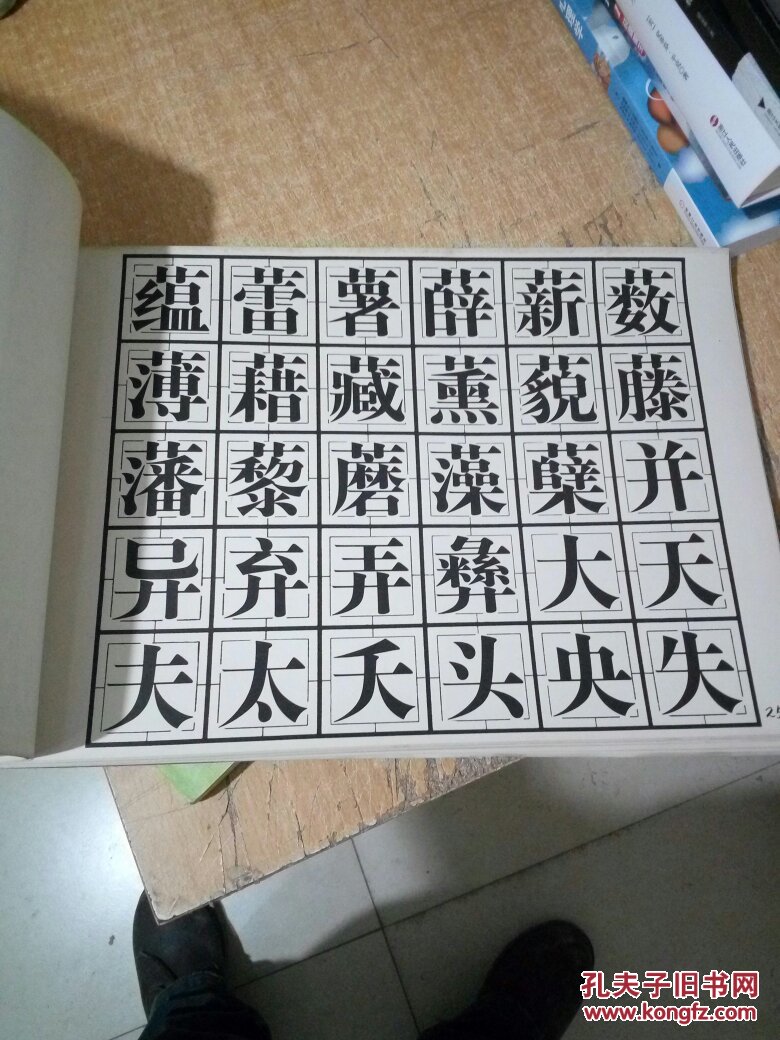 蕴蕾薯薛薪薮
薄藉藏薰藐藤
藩藜蘑藻孽并
异弃弄彝大天
夫太夭头央失
孔夫子旧书网
www.kongfz.com